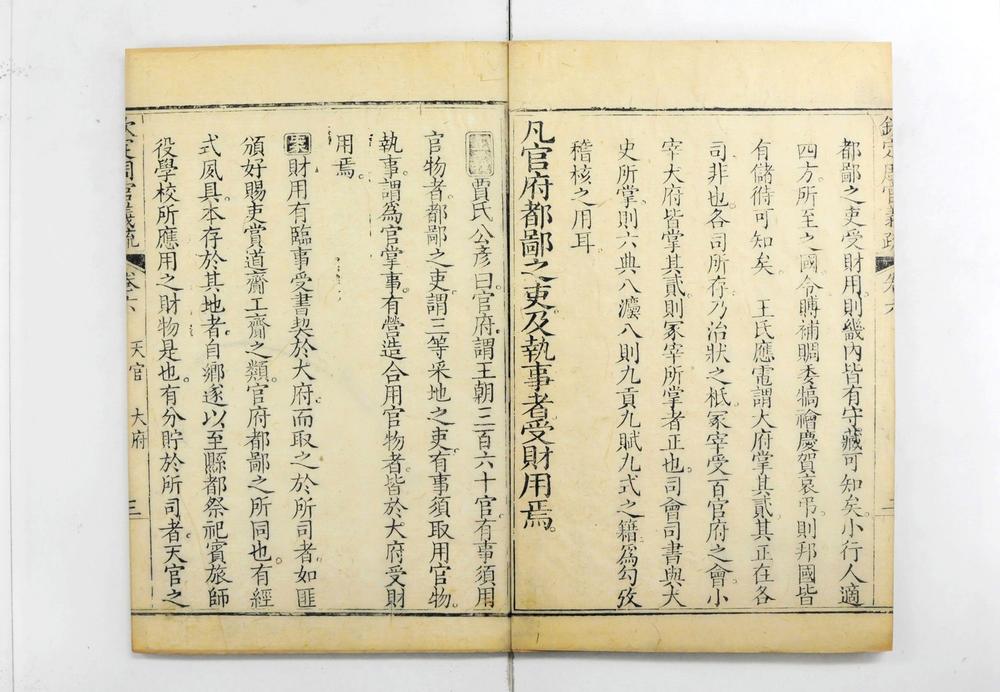 欽定周官義疏 卷六 二
都鄙之吏受財用則畿內皆有守藏可知矣小行人適
四方所至之國令賻補賙委犒禬慶賀哀弔則邦國皆
有儲偫可知矣 王氏應電謂大府掌其貳其正在各
司非也各司所存乃治狀之柢冢宰受百官府之會小
宰大府皆掌其貳則冢宰所掌者正也司會司書與大
史所掌則六典八灋八則九貢九賦九式之籍爲勾攷
稽核之用耳
凡官府都鄙之吏及執事者受財用焉
賈氏公彥曰官府謂王朝三百六十官有事須用
官物者都鄙之吏謂三等采地之吏有事須取用官物
執事謂爲官掌事有營造合用官物者皆於大府受財
用焉
案財用有臨事受書契於大府而取之於所司者如匪
頒好賜吏賞道齎工齎之類官府都鄙之所同也有經
式夙具本存於其地者自鄉遂以至縣都祭祀賓旅師
役學校所應用之財物是也有分貯於所司者天官之
欽定周官義疏 卷六 天官 大府 三